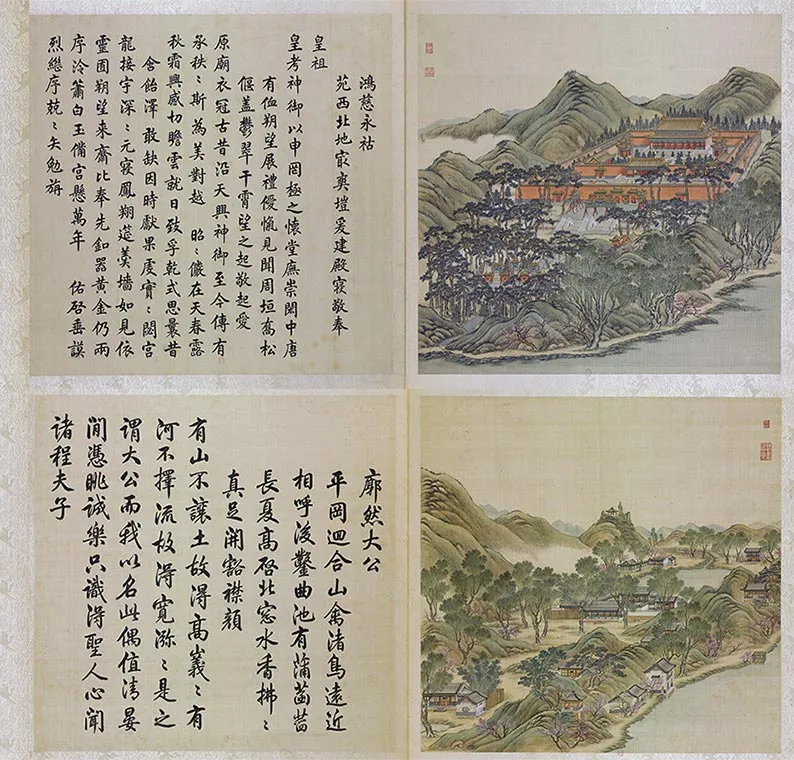 鴻慈永祜
苑西北地㝡爽塏爰建殿寢敬奉
皇祖
皇考神御以申罔極之懷堂廡崇閎中唐
有侐朔望展禮僾愾見聞周垣喬松
偃蓋鬱翠干霄望之起敬起愛
原廟衣冠古昔沿天興神御至今傳有
承秩〻斯為美對越 昭〻儼在天春露
秋霜興感切瞻雲就日致孚乾式思曩昔
含飴澤敢缺因時獻果虔實〻閟宮
龍接宇深〻元寢鳳翔筵羹墻如見依
靈囿朔望來齋比奉先釦器黃金仍兩
序泠簫白玉備宮懸萬年 佑啓垂謨
烈繼序兢〻矢勉旃
廓然大公
平岡迴合山禽渚鳥遠近
相呼後鑿曲池有蒲菡萏
長夏高啓北窓水香拂〻
真足開豁襟顏
有山不讓土故得高峩〻有
河不擇流故得寬瀰〻是之
謂大公而我以名此偶值清晏
閒憑眺誠樂只識得聖人心聞
諸程夫子